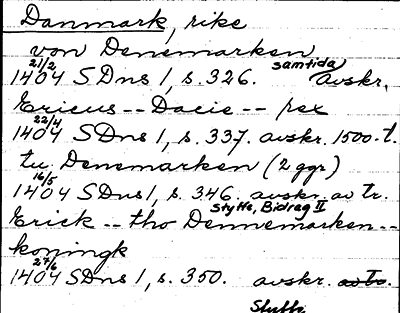 Danmark, rike
von Denemarken
21/2 samtida
1404 SDns 1, s. 326. avskr.
Ericus -- Dacie -- rex
22/4
1404 SDns 1, s. 337. avskr. 1500-t.
tu Denemarken (2 ggr)
16/5
1404 SDns 1, s. 346. avskr. av tr.
Styffe, Bidrag II
Erick -- tho Dennemarken --
konningk
27/6
1404 SDns 1, s. 350. avskr. av tr.
Styffe